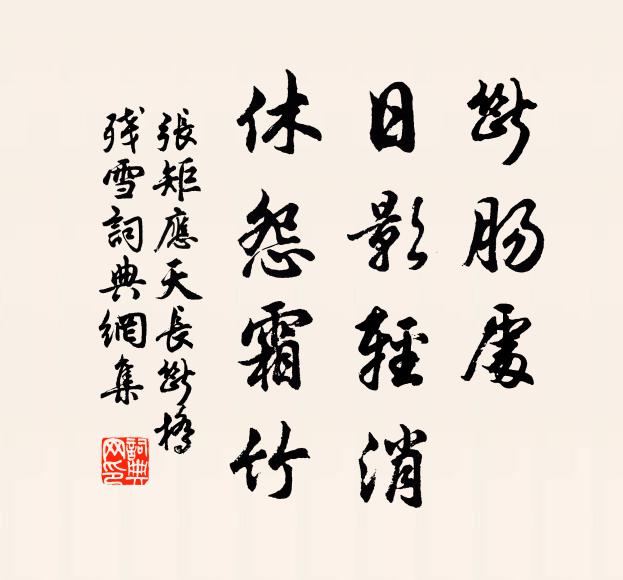 斷腸處
日影輕消
休怨霜竹
張矩應天長斷橋
殘雪詞典網集
詞典网印